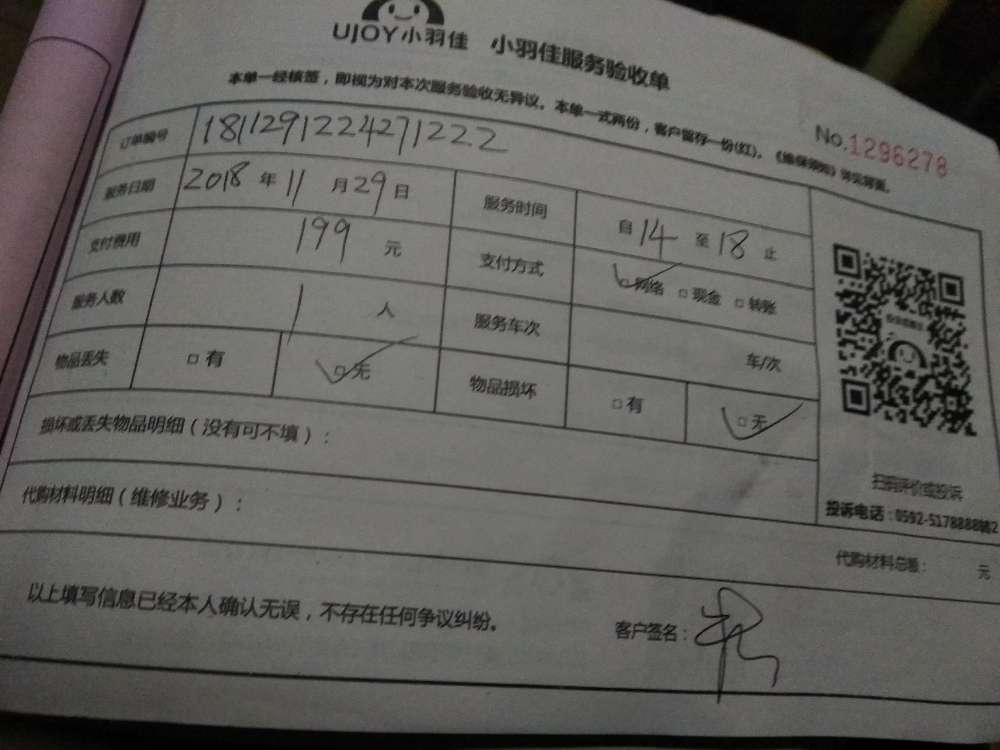 UJOY小羽佳 小羽佳服务验收单
本单一经核签，即视为对本次服务验收无异议。本单一式两份，客户留存一份(红)。《维保须知》详见背面。
No.1296278
订单编号 1811291224271222
服务日期 2018 年 11 月 29 日 服务时间 自 14 至 18 止
支付费用 199 元 支付方式 ☑网络 □现金 □转账
服务人数 1 人 服务车次 车/次
物品丢失 □有 ☑无 物品损坏 □有 ☑无
损坏或丢失物品明细（没有可不填）：
扫码评价或投诉
投诉电话：0592-5178888转2
代购材料明细（维修业务）：
代购材料总额： 元
以上填写信息已经本人确认无误，不存在任何争议纠纷。
客户签名：